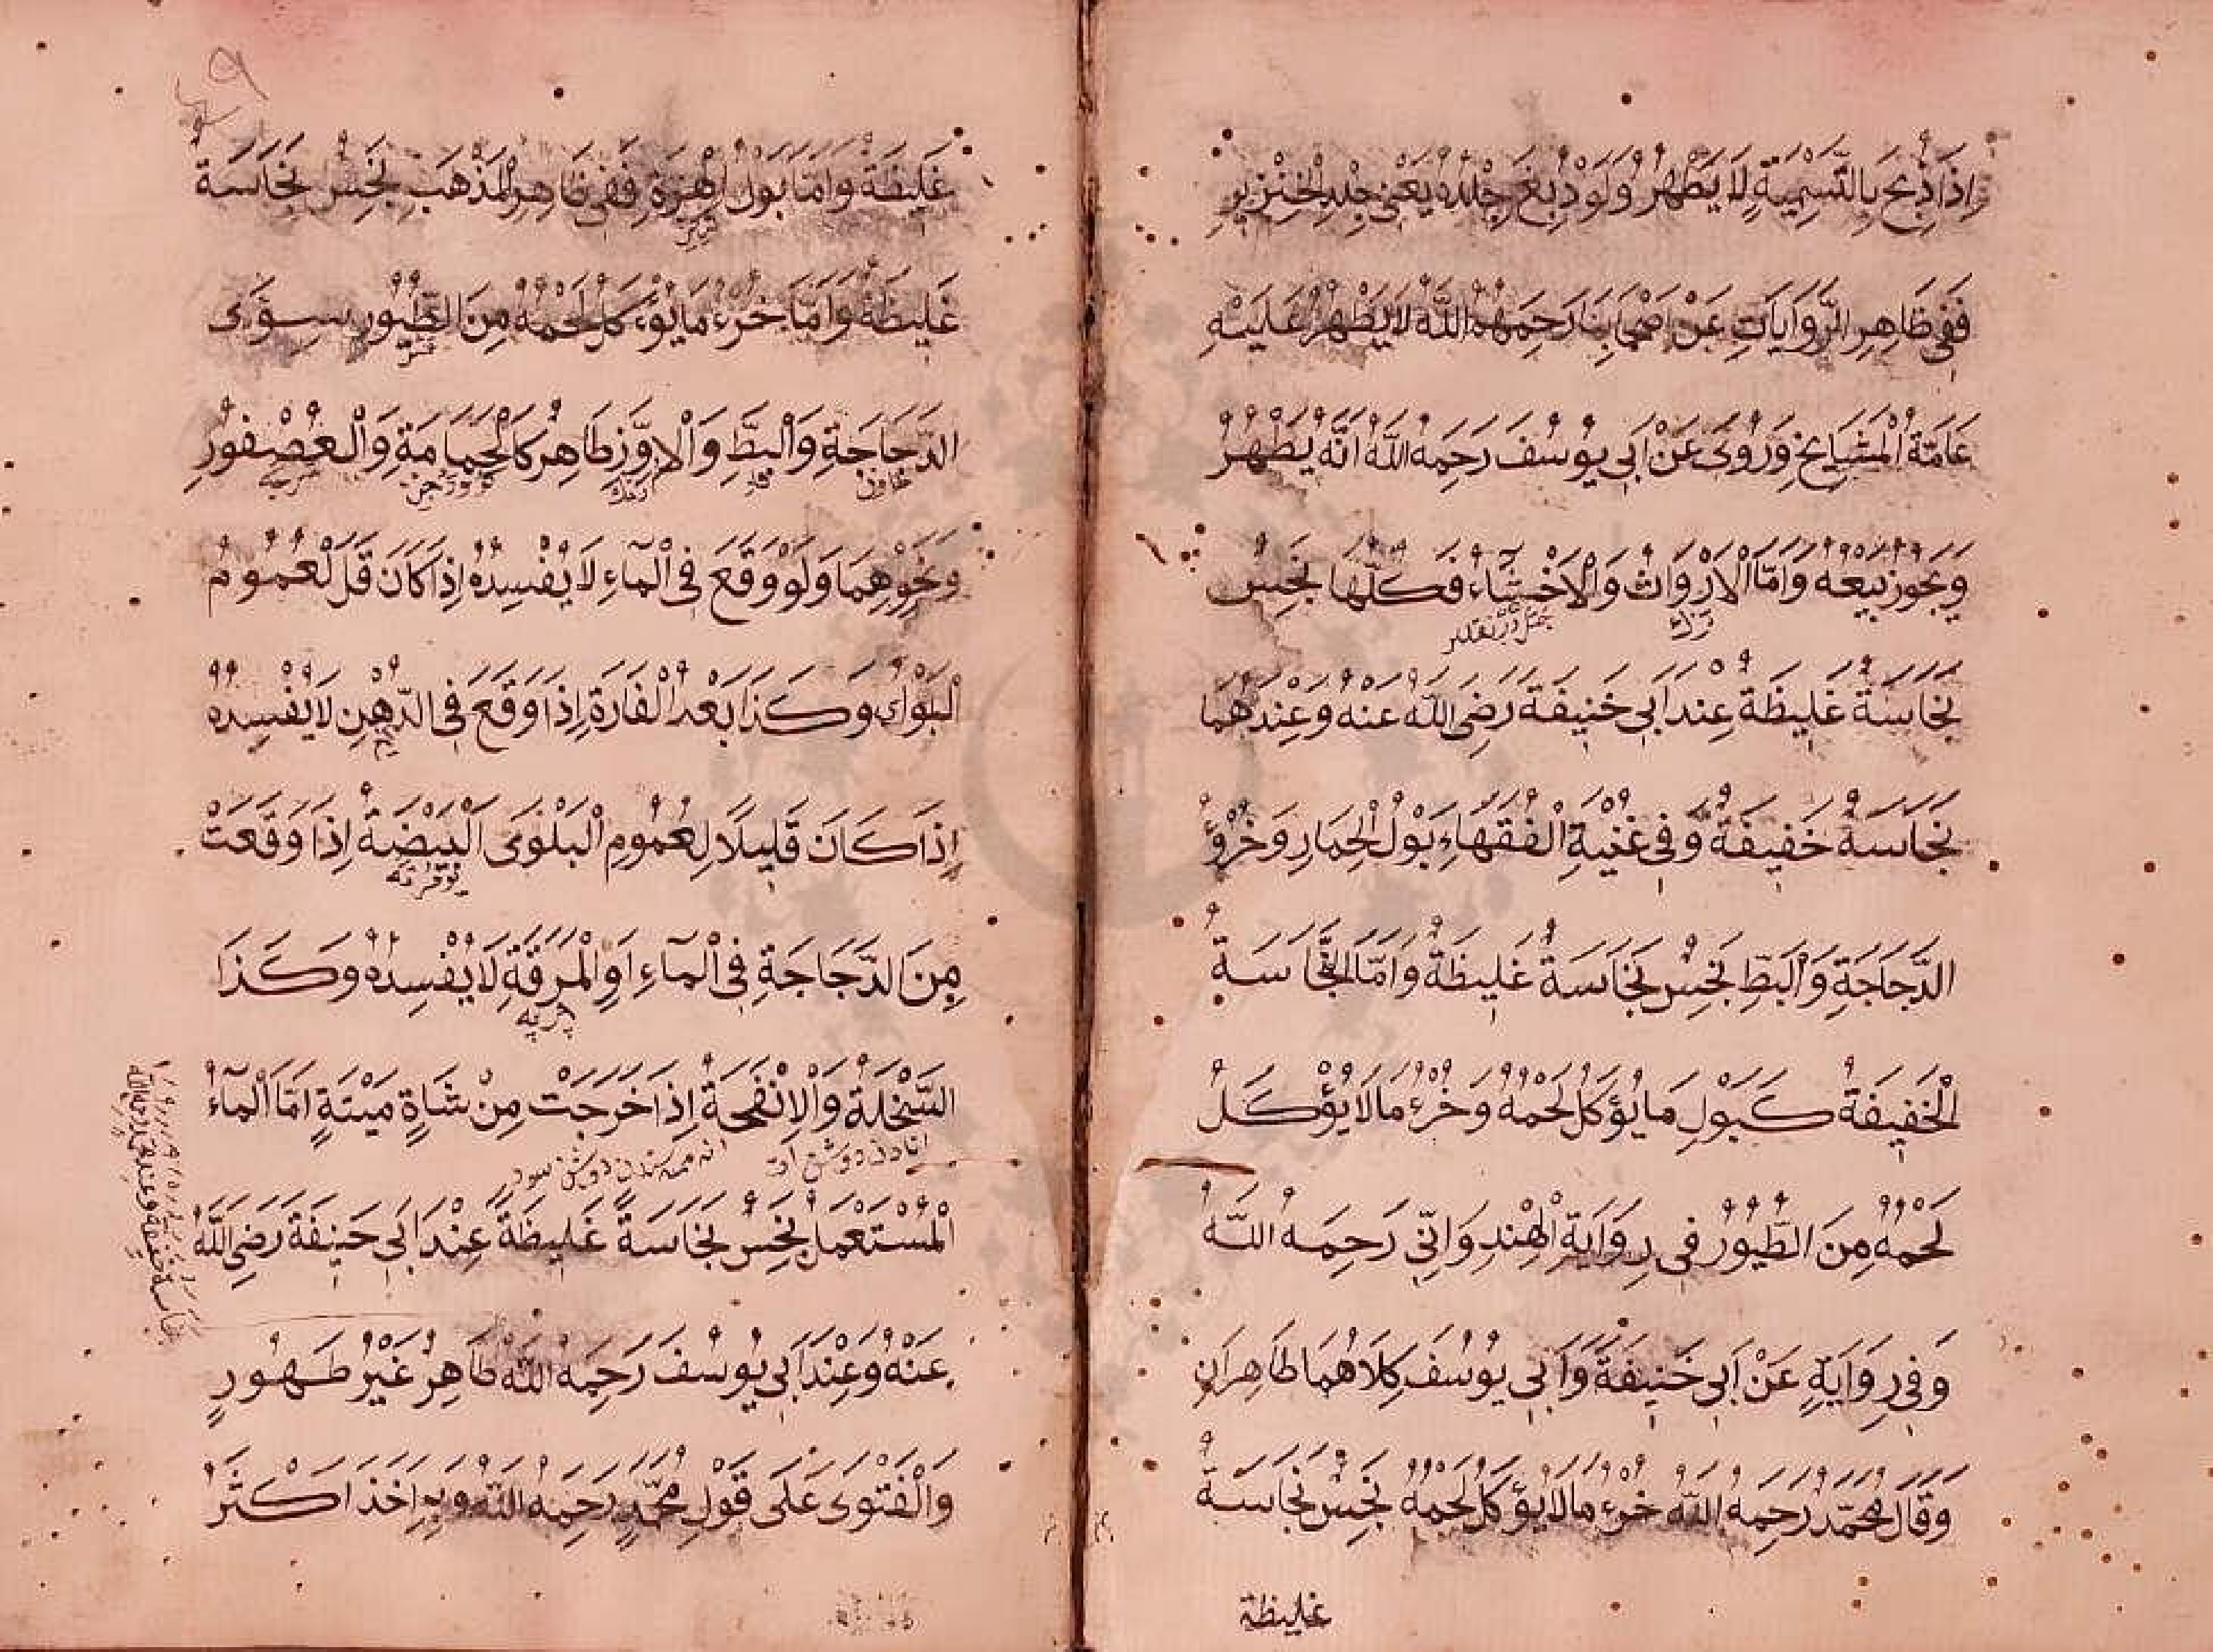 اِذَا ذُبِحَ بِالتَّسْمِيَةِ لَا يَطْهُرُ وَلَوْ دُبِغَ جِلْدُهُ يَعْنِي جِلْدِ الْخِنْزِيرِ
فَفِي ظَاهِرِ الرِّوَايَاتِ عَنْ اَصْحَابِنَا رَحِمَهُمُ اللّٰهُ لَا يَطْهُرُ عَلَيْهِ
عَامَّةُ الْمَشَايِخِ وَرُوِيَ عَنْ اَبِي يُوسُفَ رَحِمَهُ اللّٰهُ اَنَّهُ يُطْهُرُ
وَيَجُوزُ بَيْعُهُ وَاَمَّا الْاَرْوَاثُ وَالْاَخْثَاءُ فَكُلُّهَا نَجِسٌ
نَجَاسَةً غَلِيظَةً عِنْدَ اَبِي حَنِيفَةَ رَضِيَ اللّٰهُ عَنْهُ وَعِنْدَهُمَا
نَجَاسَةً خَفِيفَةً وَفِي غُنْيَةِ الْفُقَهَاءِ بَوْلُ الْحِمَارِ وَخُرْؤُ
الدَّجَاجَةِ وَالْبَطِّ نَجِسٌ نَجَاسَةً غَلِيظَةً وَاَمَّا النَّجَاسَةُ
الْخَفِيفَةُ كَبَوْلِ مَا يُؤْكَلُ لَحْمُهُ وَخُرْءُ مَا لَا يُؤْكَلُ
لَحْمُهُ مِنَ الطُّيُورِ فِي رِوَايَةِ الْهِنْدِوَانِيِّ رَحِمَهُ اللّٰهُ
وَفِي رِوَايَةٍ عَنْ اَبِي حَنِيفَةَ وَاَبِي يُوسُفَ كِلَاهُمَا طَاهِرَانِ
وَقَالَ مُحَمَّدٌ رَحِمَهُ اللّٰهُ خُرْءُ مَا لَا يُؤْكَلُ لَحْمُهُ نَجِسٌ نَجَاسَةً
غليظة
٩
غَلِيظَةً وَاَمَّا بَوْلُ الْهِرَّةِ فَفِي ظَاهِرِ الْمَذْهَبِ نَجِسٌ نَجَاسَةً
غَلِيظَةً وَاَمَّا خُرْءُ مَا يُؤْكَلُ لَحْمُهُ مِنَ الطُّيُورِ سِوَى
الدَّجَاجَةِ وَالْبَطِّ وَالْاِوَزِّ طَاهِرٌ كَالْحَمَامَةِ وَالْعُصْفُورِ
وَنَحْوِهِمَا وَلَوْ وَقَعَ فِي الْمَآءِ لَا يُفْسِدُهُ اِذَا كَانَ قَلَّ لِعُمُومِ
الْبَلْوٰى وَكَذَا بَعْرُ الْفَارَةِ اِذَا وَقَعَ فِي الدُّهْنِ لَا يُفْسِدُهُ
اِذَا كَانَ قَلِيلًا لِعُمُومِ الْبَلْوَى اَلْبَيْضَةُ اِذَا وَقَعَتْ
مِنَ الدَّجَاجَةِ فِي الْمَآءِ اَوِ الْمَرَقَةِ لَا يُفْسِدُهُ وَكَذَا
السَّخْلَةُ وَالْاِنْفَحَةُ اِذَا خَرَجَتْ مِنْ شَاةٍ مَيْتَةٍ اَمَّا الْمَآءُ
الْمُسْتَعْمَلُ نَجِسٌ نَجَاسَةً غَلِيظَةً عِنْدَ اَبِي حَنِيفَةَ رَضِيَ اللّٰهُ
عَنْهُ وَعِنْدَ اَبِي يُوسُفَ رَحِمَهُ اللّٰهُ طَاهِرٌ غَيْرُ طَهُورٍ
وَالْفَتْوَى عَلَى قَوْلِ مُحَمَّدٍ رَحِمَهُ اللّٰهُ وَبِهِ اَخَذَ اَكْثَرُ
نجاسة خفيفة وعند محمد رحمه الله